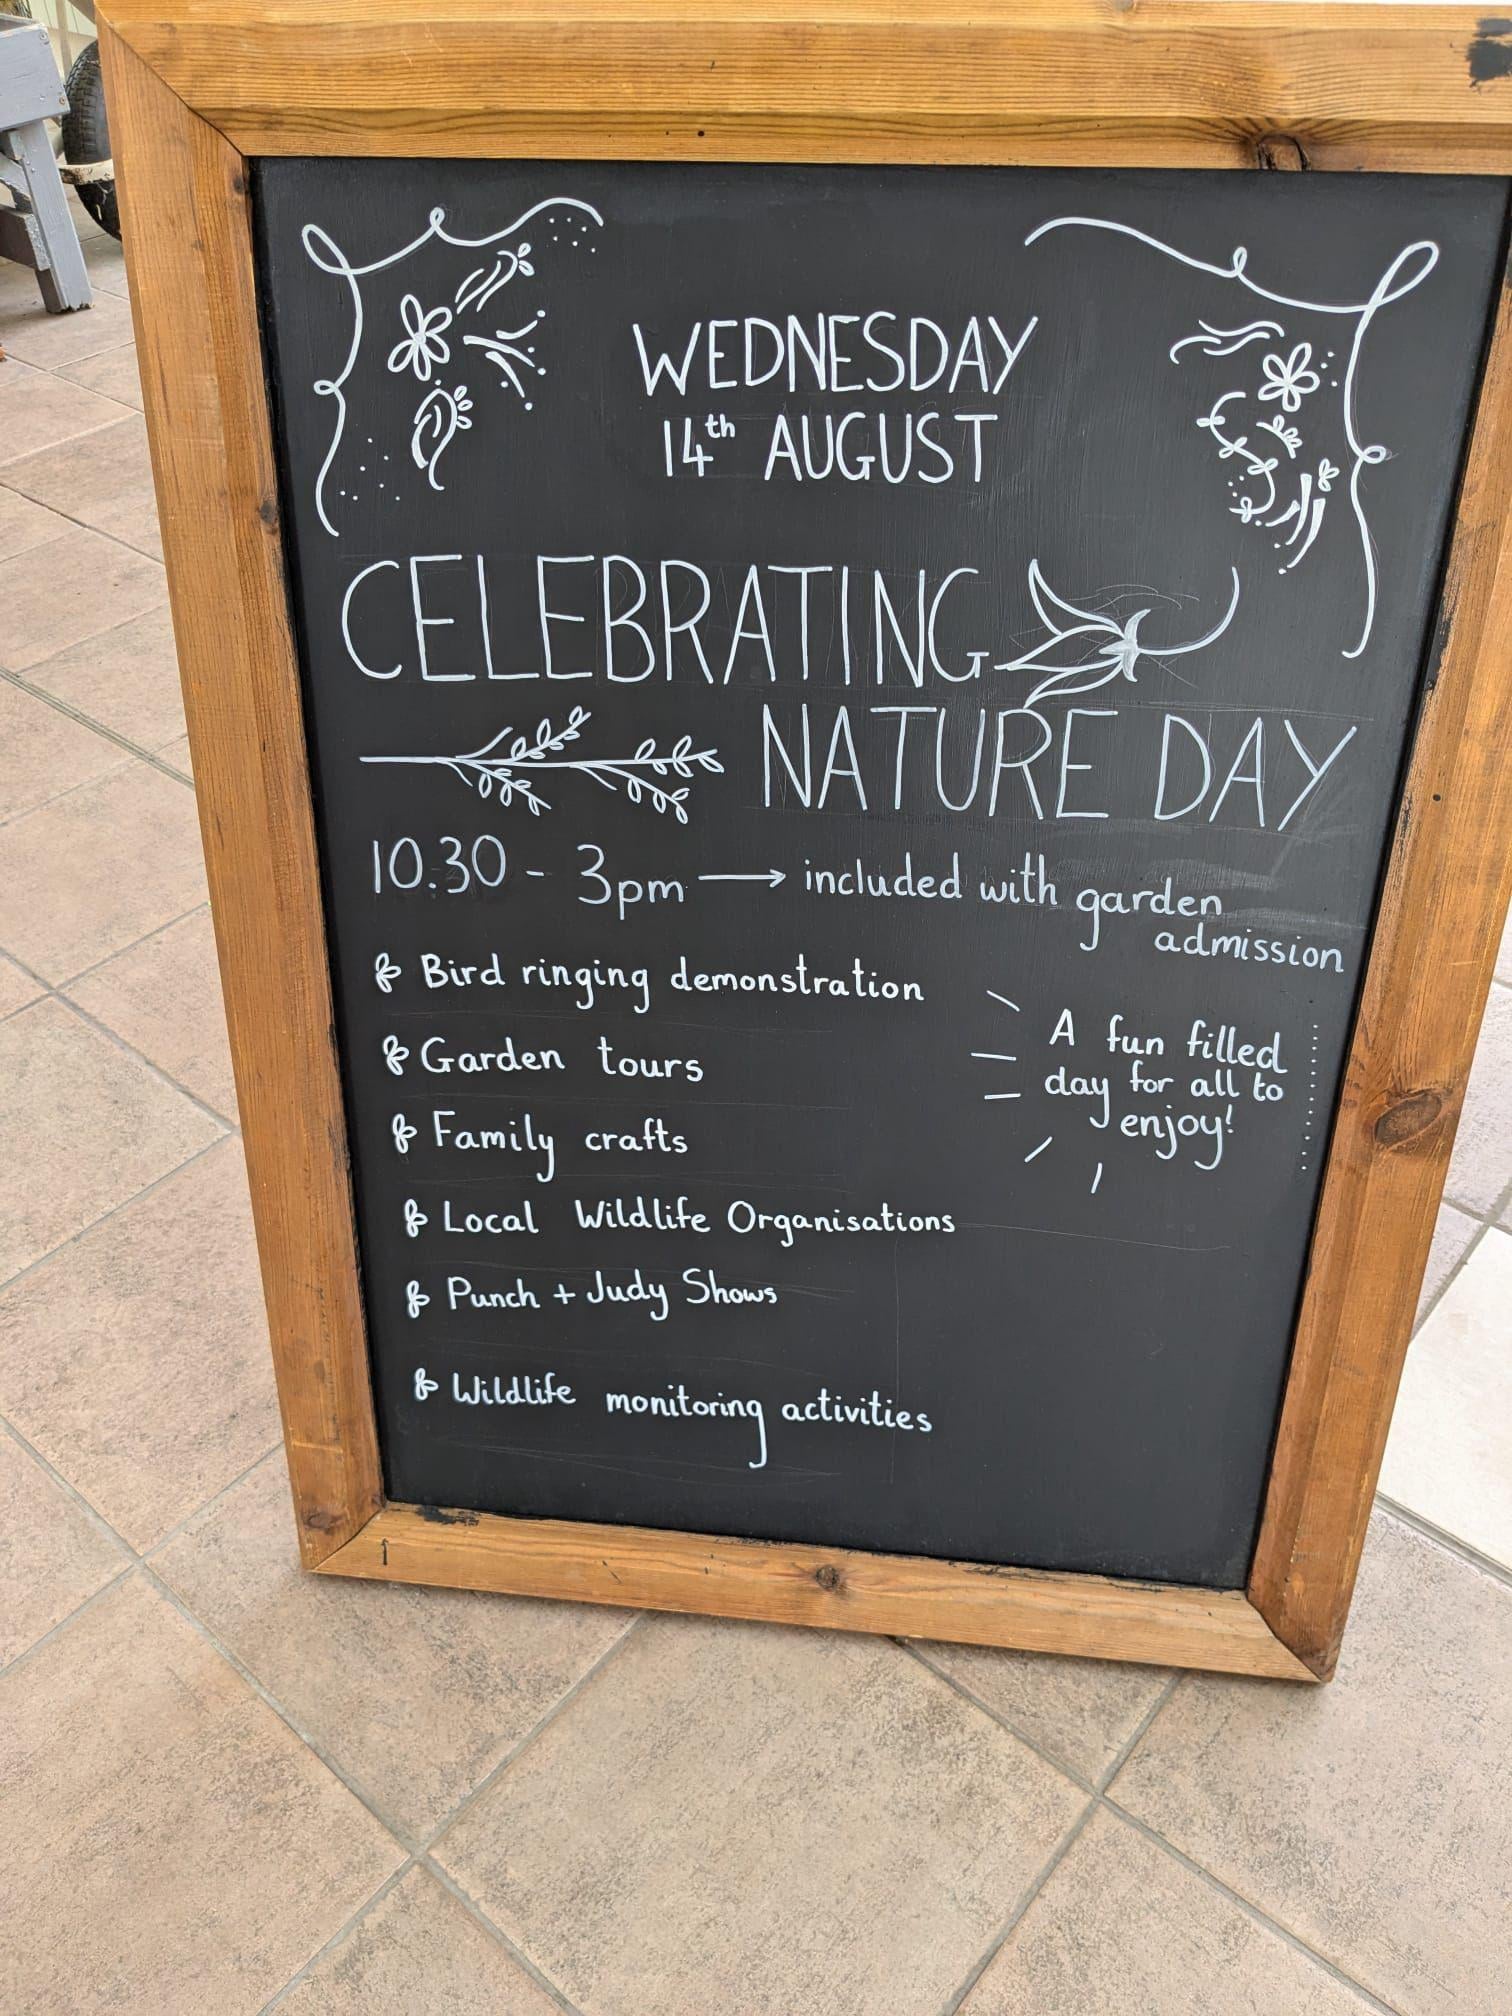 WEDNESDAY
14th AUGUST
CELEBRATING
NATURE DAY
10.30 - 3pm → included with garden
admission
Bird ringing demonstration
Garden tours
Family crafts
Local Wildlife Organisations
Punch + Judy Shows
Wildlife monitoring activities
A fun filled
day for all to
enjoy!